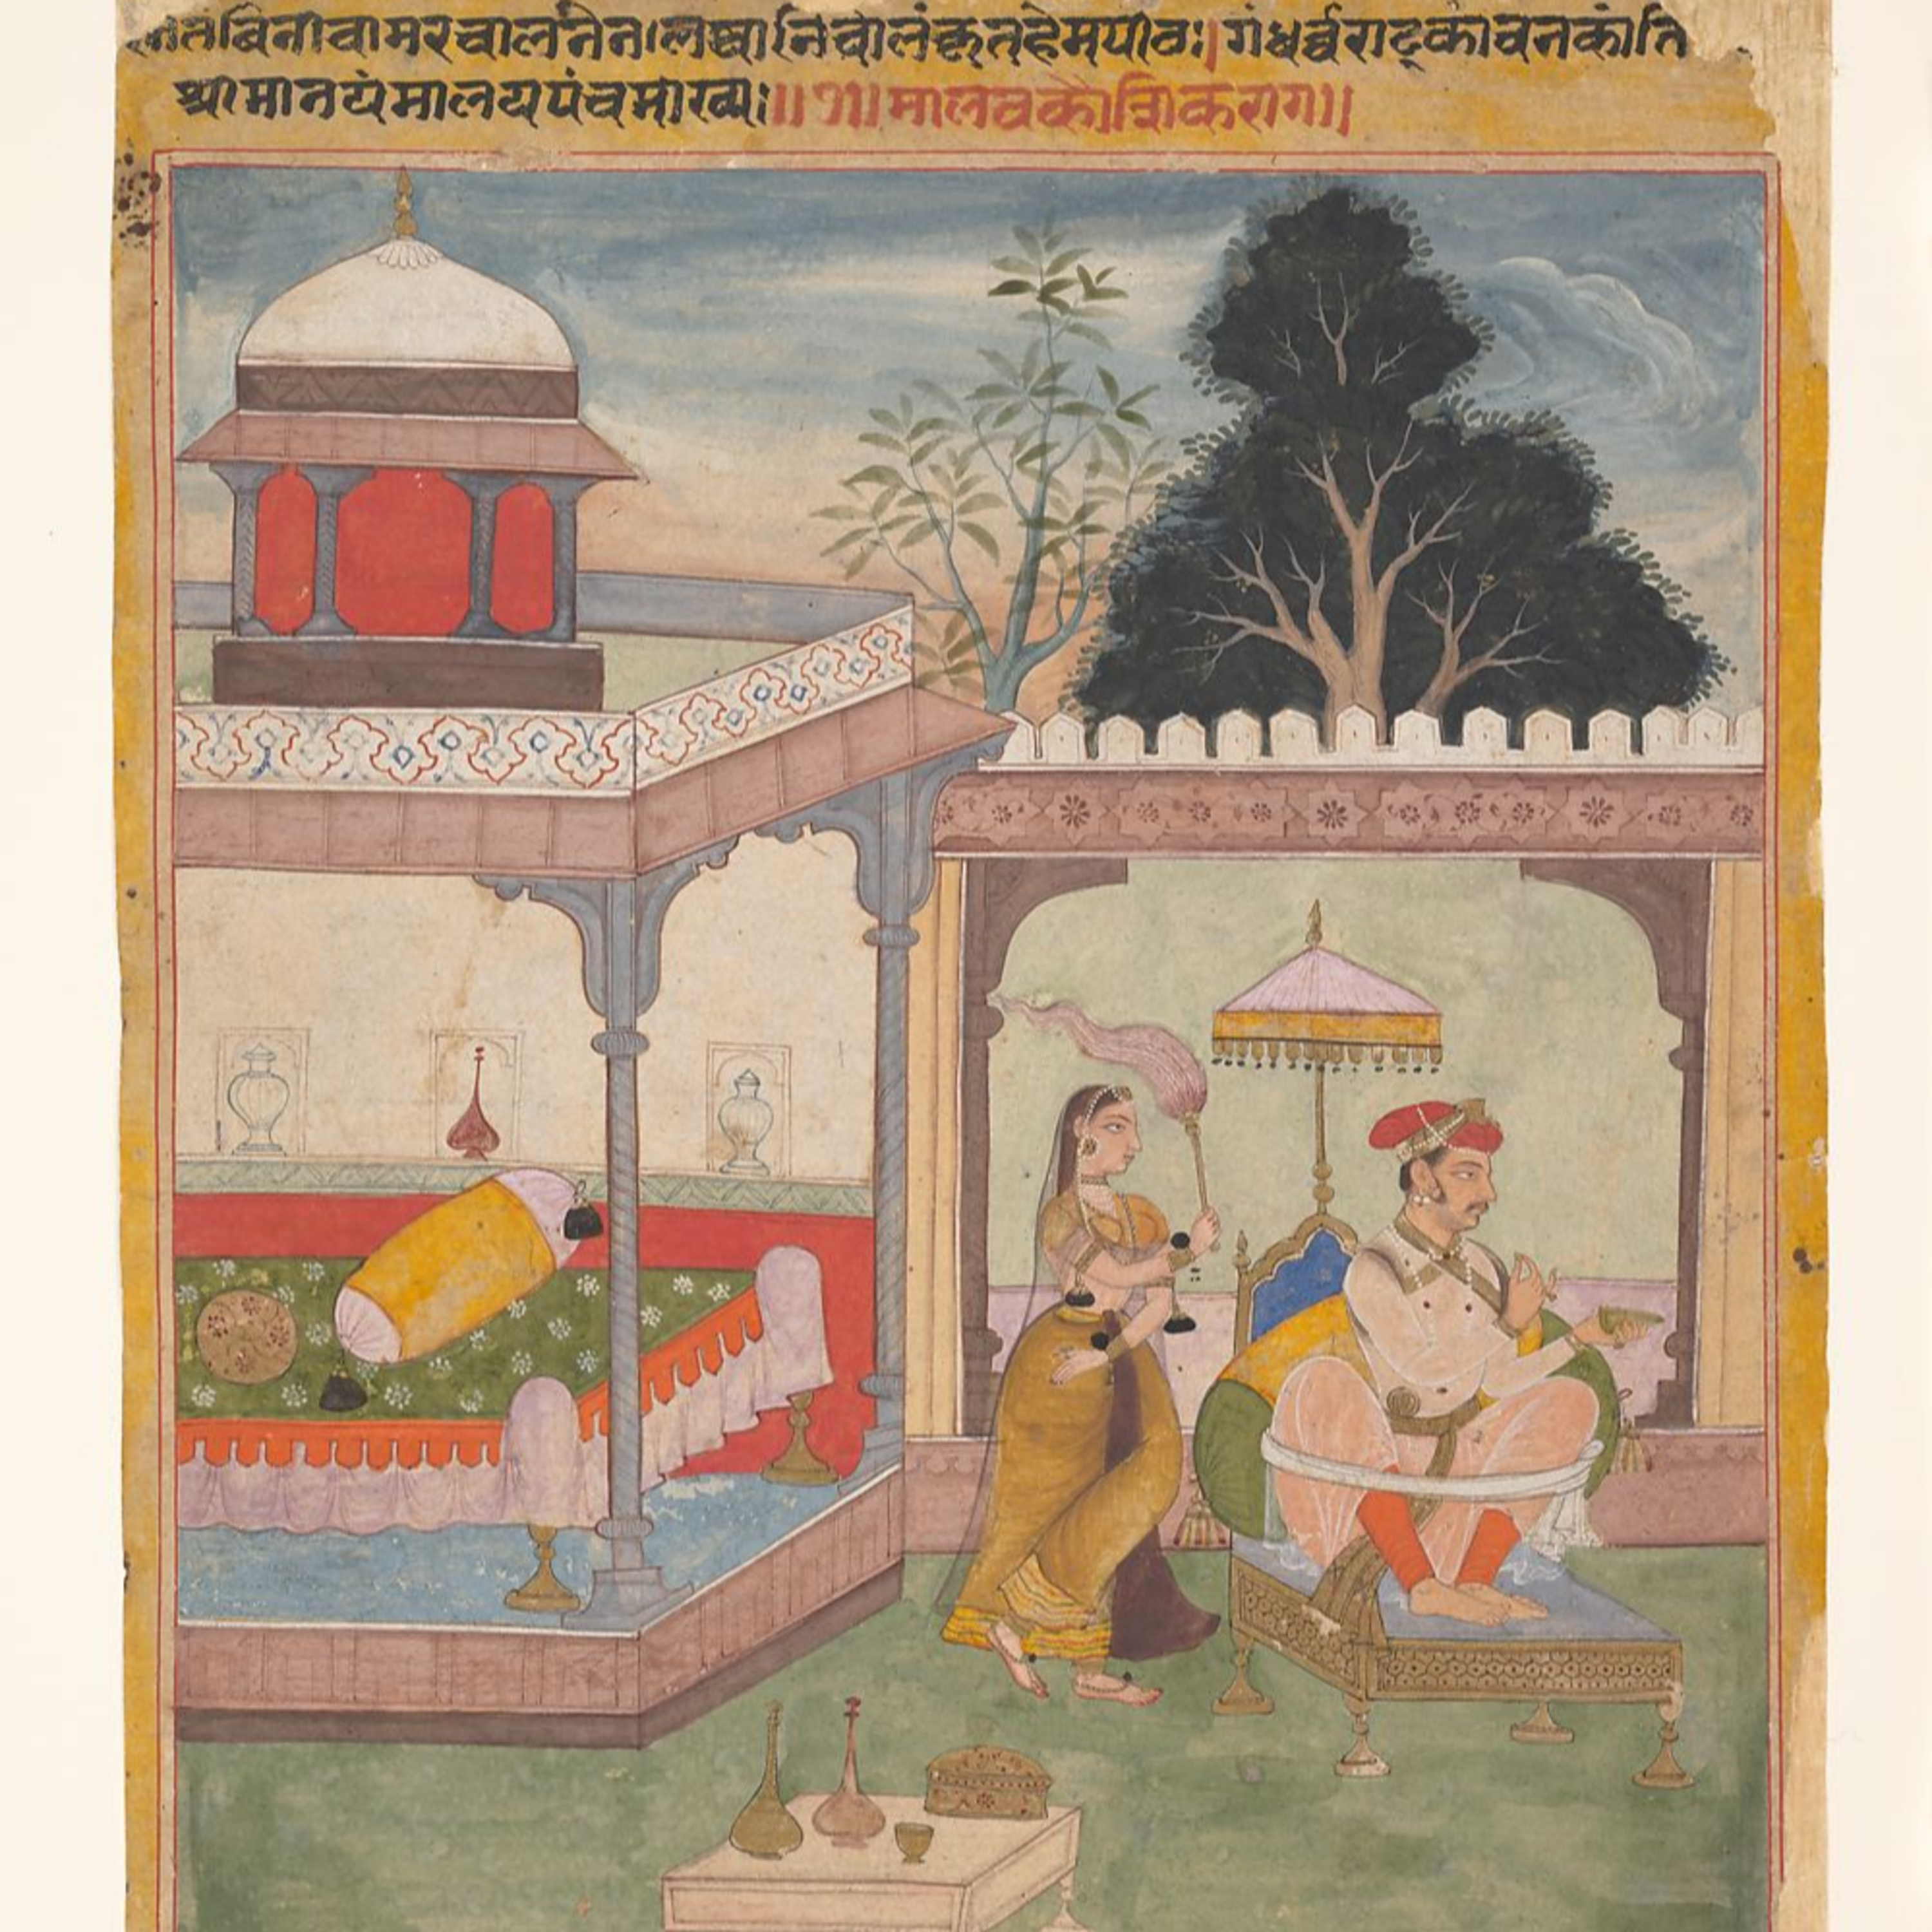 तबिनीचामरचालनेन।लष्वानिचोलंकृतहेमपीठः।गंधर्व्वराट्कांचनकांति
श्रीमानयंमालयपंचमाख्यः॥१॥मालवकौशिकराग॥